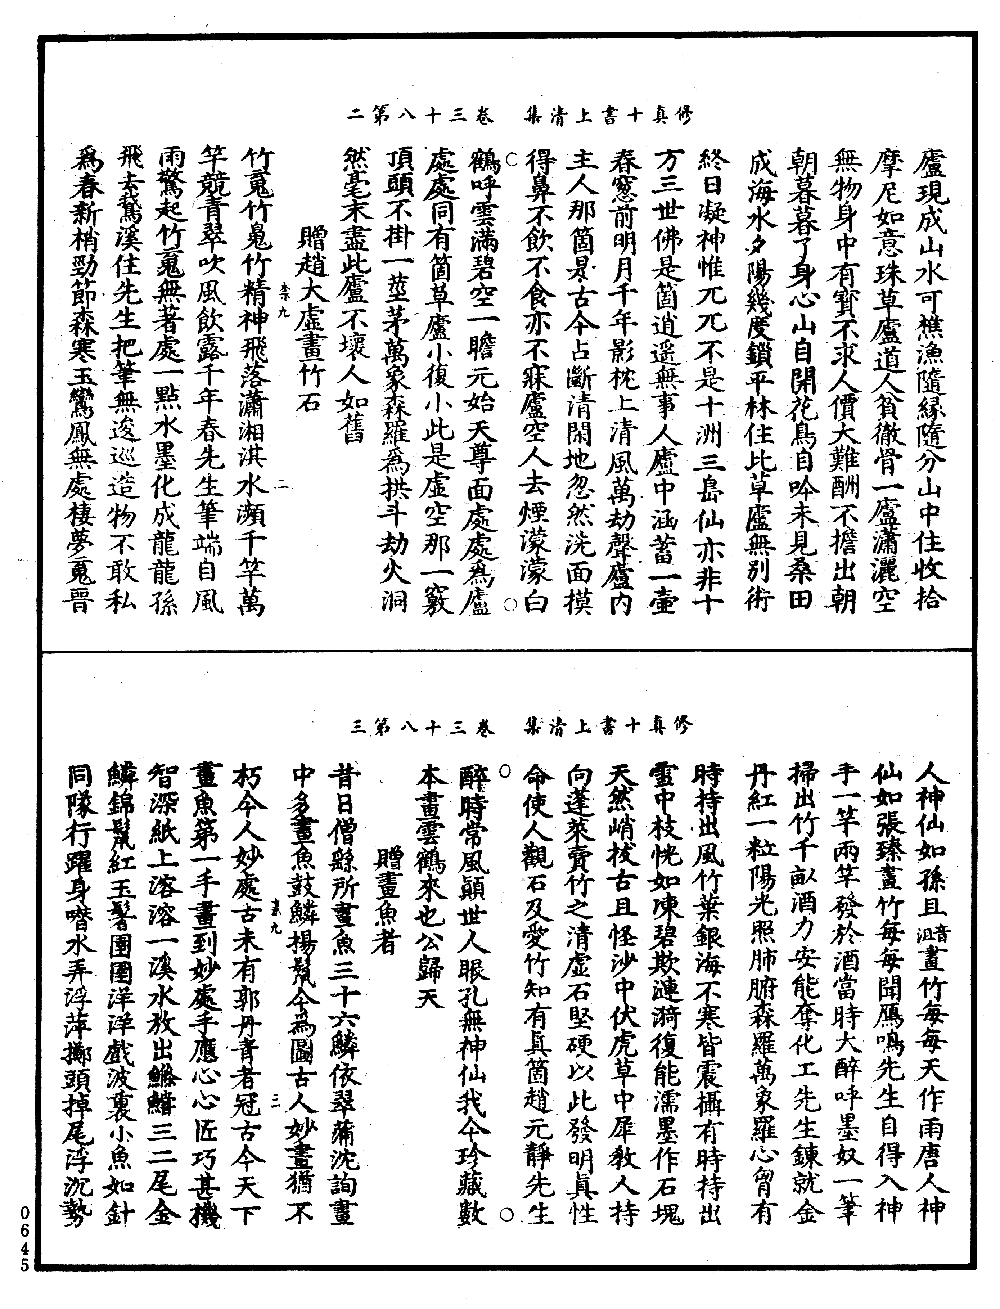 修真十書上清集　卷三十八第二
廬現成山水可樵漁隨緣隨分山中住收拾
摩尼如意珠草廬道人貧徹骨一廬瀟灑空
無物身中有寶不求人價大難酬不擔出朝
朝暮暮了身心山自開花鳥自吟未見桑田
成海水夕陽幾度鎖平林住此草廬無別術
終日凝神惟兀兀不是十洲三島仙亦非十
方三世佛是箇逍遥無事人廬中涵蓄一壷
春窓前明月千年影枕上清風萬劫聲廬内
主人那箇是古今占斷清閑地忽然洗面摸
得鼻不飲不食亦不寐廬空人去煙濛濛白
鶴呼雲滿碧空一瞻元始天尊面處處為廬
處處同有箇草廬小復小此是虚空那一竅
頂頭不掛一莖茅萬象森羅為拱斗劫火洞
然毫末盡此廬不壞人如舊
贈趙大虚畫竹石
竹䰟竹䰟竹精神飛落瀟湘淇水瀕千竿萬
竿競青翠吹風飲露千年春先生筆端自風
雨驚起竹䰟無著處一點水墨化成龍龍孫
飛去鵞溪住先生把筆無逡巡造物不敢私
為春新梢勁節森寒玉鸞鳳無處棲夢䰟晉
修真十書上清集　卷三十八第三
人神仙如孫且音沮畫竹每每天作雨唐人神
仙如張臻畫竹每每聞鴈鳴先生自得入神
手一竿兩竿發於酒當時大醉呼墨奴一筆
掃出竹千畝酒力安能奪化工先生鍊就金
丹紅一粒陽光照肺腑森羅萬象羅心胷有
時持出風竹葉銀海不寒皆震攝有時持出
雪中枝恍如凍碧欺漣漪復能濡墨作石塊
天然峭拔古且怪沙中伏虎草中犀教人持
向蓬萊賣竹之清虚石堅硬以此發明真性
命使人觀石及愛竹知有真箇趙元靜先生
醉時常風顛世人眼孔無神仙我今珍藏數
本畫雲鶴來也公歸天
贈畫魚者
昔日僧繇所畫魚三十六鱗依翠蒲沈詢畫
中多畫魚鼓鱗揚鬣今為圖古人妙畫猶不
朽今人妙處古未有郭丹青者冠古今天下
畫魚第一手畫到妙處手應心心匠巧甚機
智深紙上溶溶一溪水放出鰷鯌三二尾金
鱗錦鬣紅玉髻圉圉洋洋戲波裏小魚如針
同隊行躍身噆水弄浮萍擲頭掉尾浮沉勢
0645